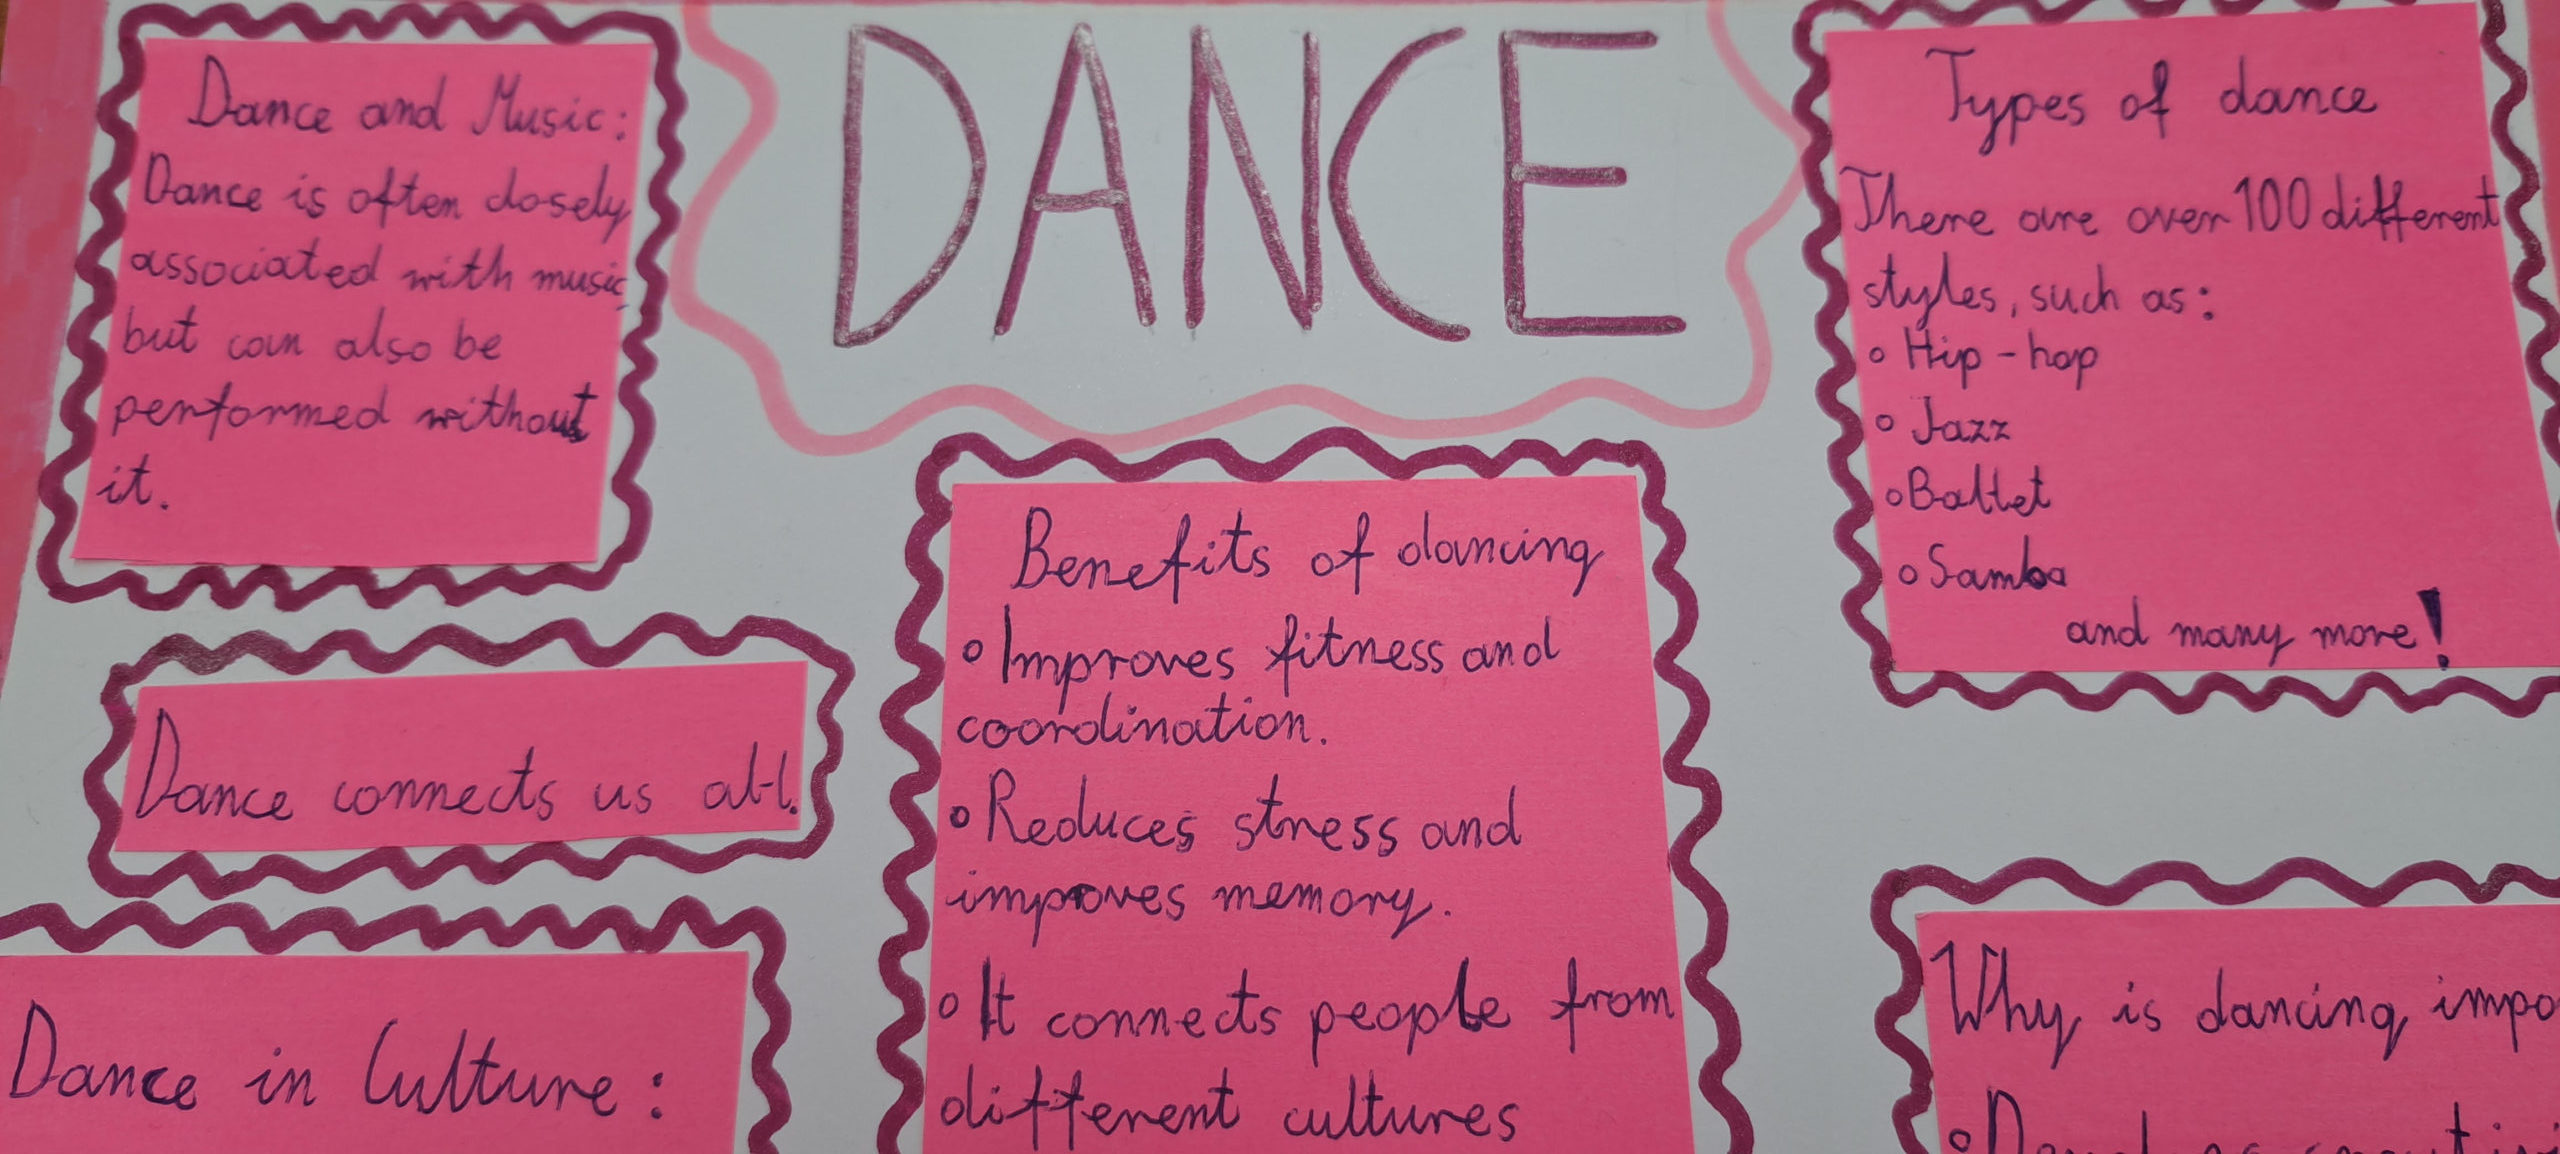 DANCE
Dance and Music:
Dance is often closely
associated with music,
but can also be
performed without
it.
Dance connects us all.
Dance in Culture:
Benefits of dancing
• Improves fitness and
coordination.
• Reduces stress and
improves memory.
• It connects people from
different cultures
Types of dance
There are over 100 different
styles, such as:
• Hip-hop
• Jazz
• Ballet
• Samba
and many more!
Why is dancing impo